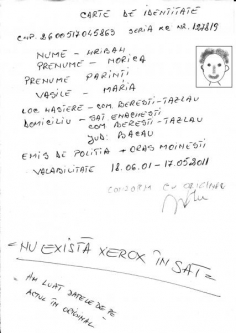 CARTE DE IDENTITATE
CNP. 2600517045863 SERIA XC NR. 127819
NUME - HRIBAN
PRENUME - MORICA
PRENUME PĂRINTI
VASILE - MARIA
LOC. NASTERE - COM. BERESTI-TAZLAU
DOMICILIU - SAT ENACHESTI
COM. BERESTI-TAZLAU
JUD: BACAU
EMIS DE POLITIA - ORAS MOINESTI
VALABILITATE 18.06.01 - 17.05.2011
CONFORM CU ORIGINAL
= NU EXISTĂ XEROX ÎN SAT =
"AM LUAT DATELE DE PE
ACTUL ÎN ORIGINAL"